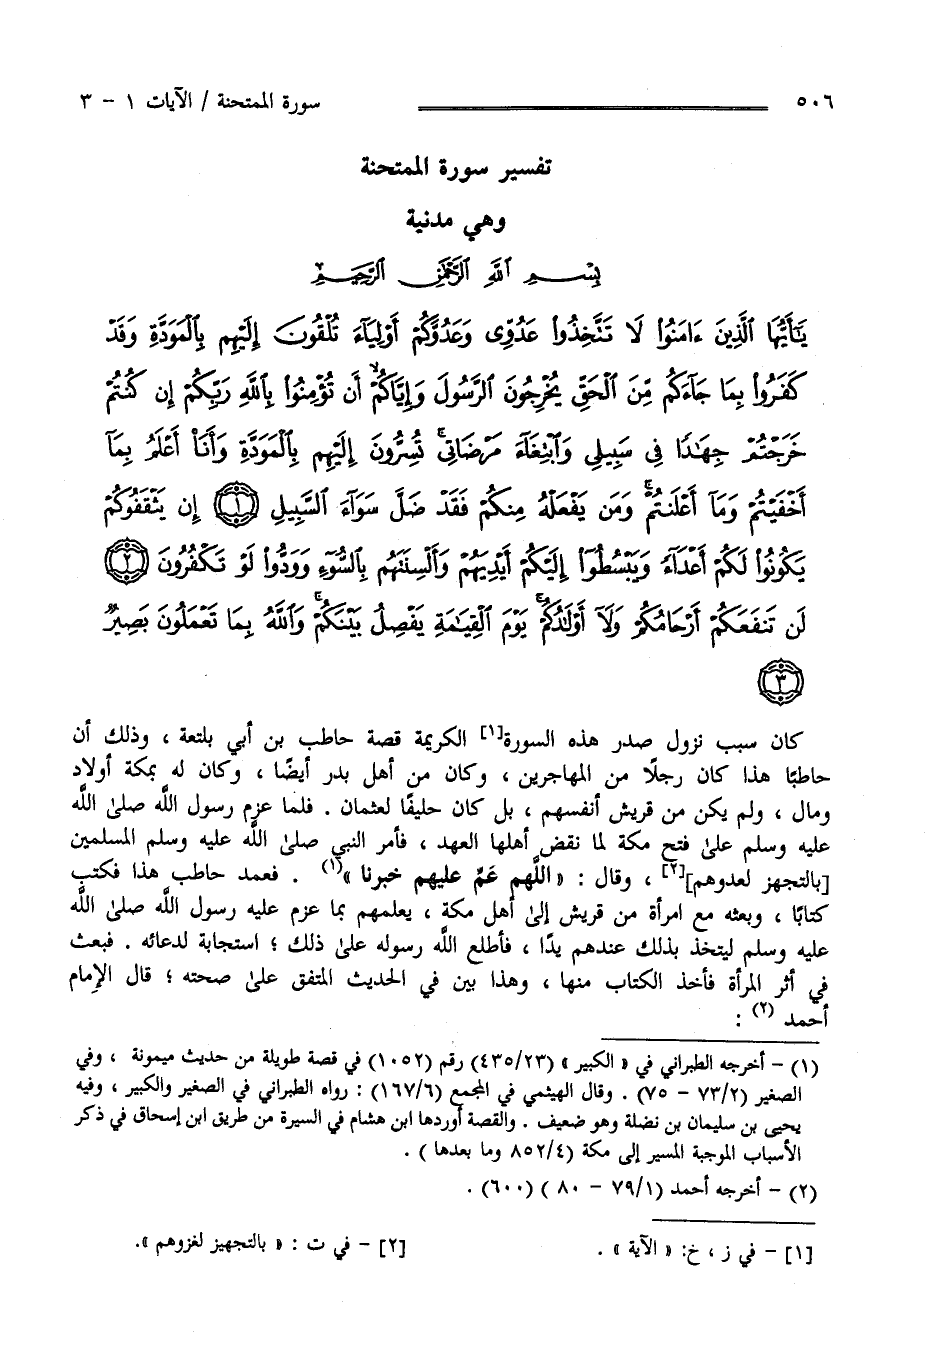 ٥٠٦ سورة الممتحنة / الآيات ١ - ٣
تفسير سورة الممتحنة
وهي مدنية
بِسْمِ اللَّهِ الرَّحْمَٰنِ الرَّحِيمِ
يَٰٓأَيُّهَا ٱلَّذِينَ ءَامَنُوا۟ لَا تَتَّخِذُوا۟ عَدُوِّى وَعَدُوَّكُمْ أَوْلِيَآءَ تُلْقُونَ إِلَيْهِم بِٱلْمَوَدَّةِ وَقَدْ
كَفَرُوا۟ بِمَا جَآءَكُم مِّنَ ٱلْحَقِّ يُخْرِجُونَ ٱلرَّسُولَ وَإِيَّاكُمْ ۙ أَن تُؤْمِنُوا۟ بِٱللَّهِ رَبِّكُمْ إِن كُنتُمْ
خَرَجْتُمْ جِهَٰدًا فِى سَبِيلِى وَٱبْتِغَآءَ مَرْضَاتِى ۚ تُسِرُّونَ إِلَيْهِم بِٱلْمَوَدَّةِ وَأَنَا۠ أَعْلَمُ بِمَآ
أَخْفَيْتُمْ وَمَآ أَعْلَنتُمْ ۚ وَمَن يَفْعَلْهُ مِنكُمْ فَقَدْ ضَلَّ سَوَآءَ ٱلسَّبِيلِ ١ إِن يَثْقَفُوكُمْ
يَكُونُوا۟ لَكُمْ أَعْدَآءً وَيَبْسُطُوٓا۟ إِلَيْكُمْ أَيْدِيَهُمْ وَأَلْسِنَتَهُم بِٱلسُّوٓءِ وَوَدُّوا۟ لَوْ تَكْفُرُونَ ٢
لَن تَنفَعَكُمْ أَرْحَامُكُمْ وَلَآ أَوْلَٰدُكُمْ ۚ يَوْمَ ٱلْقِيَٰمَةِ يَفْصِلُ بَيْنَكُمْ ۚ وَٱللَّهُ بِمَا تَعْمَلُونَ بَصِيرٌ
٣
كان سبب نزول صدر هذه السورة[١] الكريمة قصة حاطب بن أبي بلتعة ، وذلك أن
حاطبًا هذا كان رجلًا من المهاجرين ، وكان من أهل بدر أيضًا ، وكان له بمكة أولاد
ومال ، ولم يكن من قريش أنفسهم ، بل كان حليفًا لعثمان . فلما عزم رسول اللَّه صلى اللَّه
عليه وسلم على فتح مكة لما نقض أهلها العهد ، فأمر النبي صلى اللَّه عليه وسلم المسلمين
[بالتجهز لعدوهم][٢] ، وقال : « اللَّهم عَمِّ عليهم خبرنا »(١) . فعمد حاطب هذا فكتب
كتابًا ، وبعثه مع امرأة من قريش إلى أهل مكة ، يعلمهم بما عزم عليه رسول اللَّه صلى اللَّه
عليه وسلم ليتخذ بذلك عندهم يدًا ، فأطلع اللَّه رسوله على ذلك ؛ استجابة لدعائه . فبعث
في أثر المرأة فأخذ الكتاب منها ، وهذا بين في الحديث المتفق على صحته ؛ قال الإمام
أحمد (٢) :
(١) - أخرجه الطبراني في « الكبير » (٤٣٥/٢٣) رقم (١٠٥٢) في قصة طويلة من حديث ميمونة ، وفي
الصغير (٧٣/٢ - ٧٥) . وقال الهيثمي في المجمع (١٦٧/٦) : رواه الطبراني في الصغير والكبير ، وفيه
يحيى بن سليمان بن نضلة وهو ضعيف . والقصة أوردها ابن هشام في السيرة من طريق ابن إسحاق في ذكر
الأسباب الموجبة المسير إلى مكة (٨٥٢/٤ وما بعدها ) .
(٢) - أخرجه أحمد (٧٩/١ - ٨٠ ) (٦٠٠) .
[١] - في ز ، خ: « الآية » . [٢] - في ت : « بالتجهيز لغزوهم ».